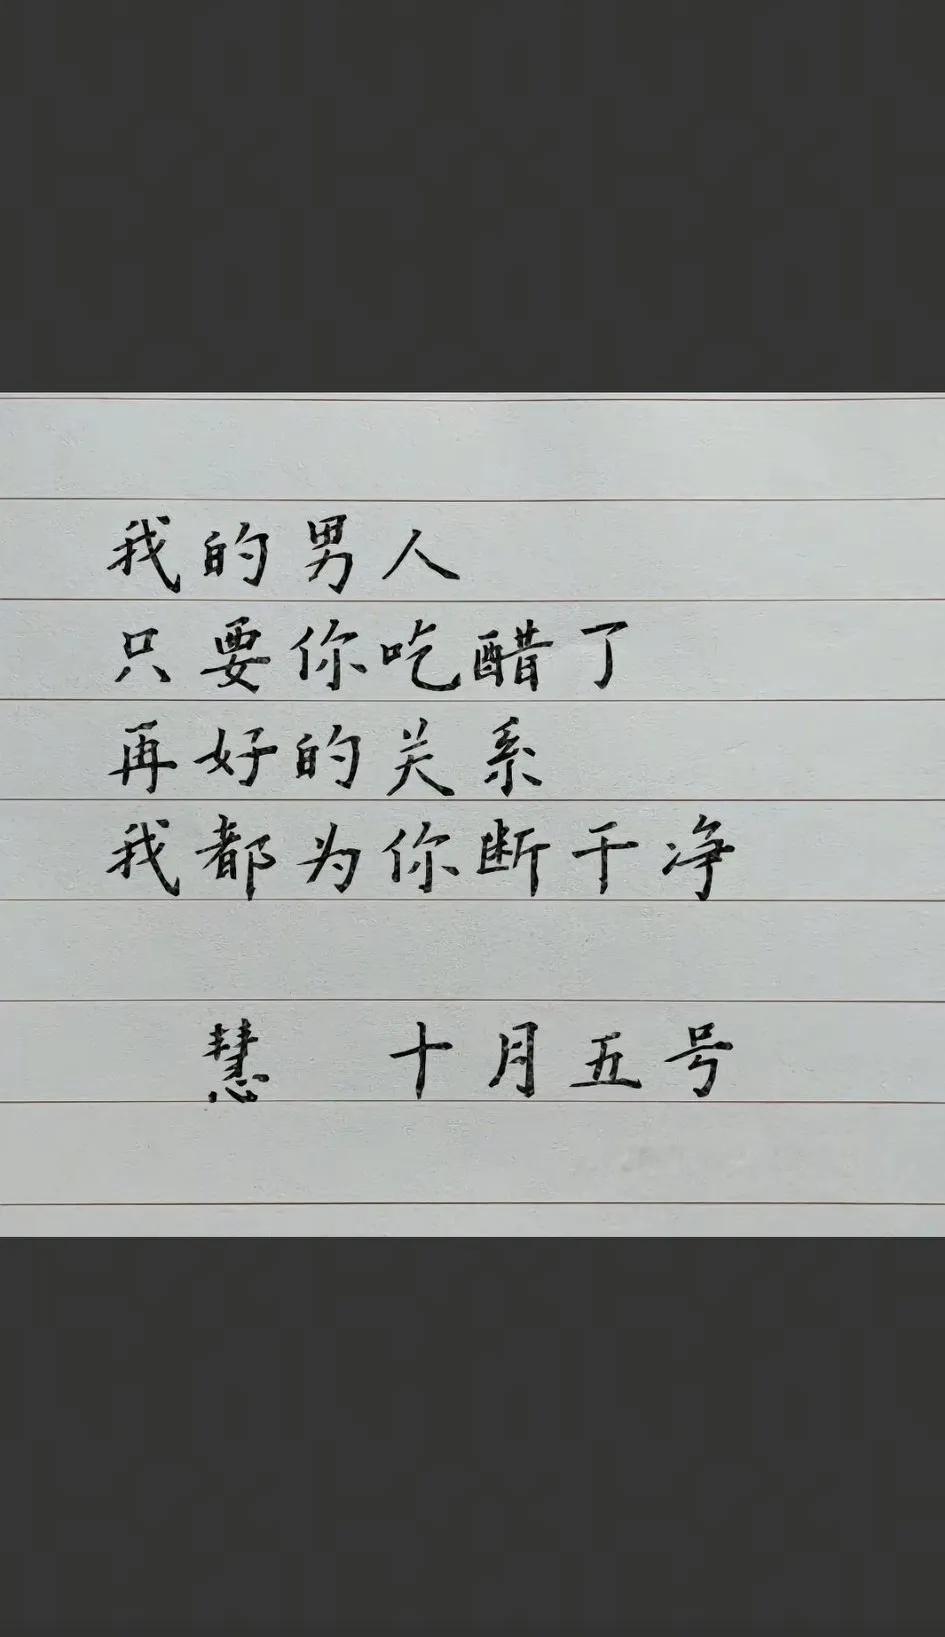 我的男人
只要你吃醋了
再好的关系
我都为你断干净
慧 十月五号